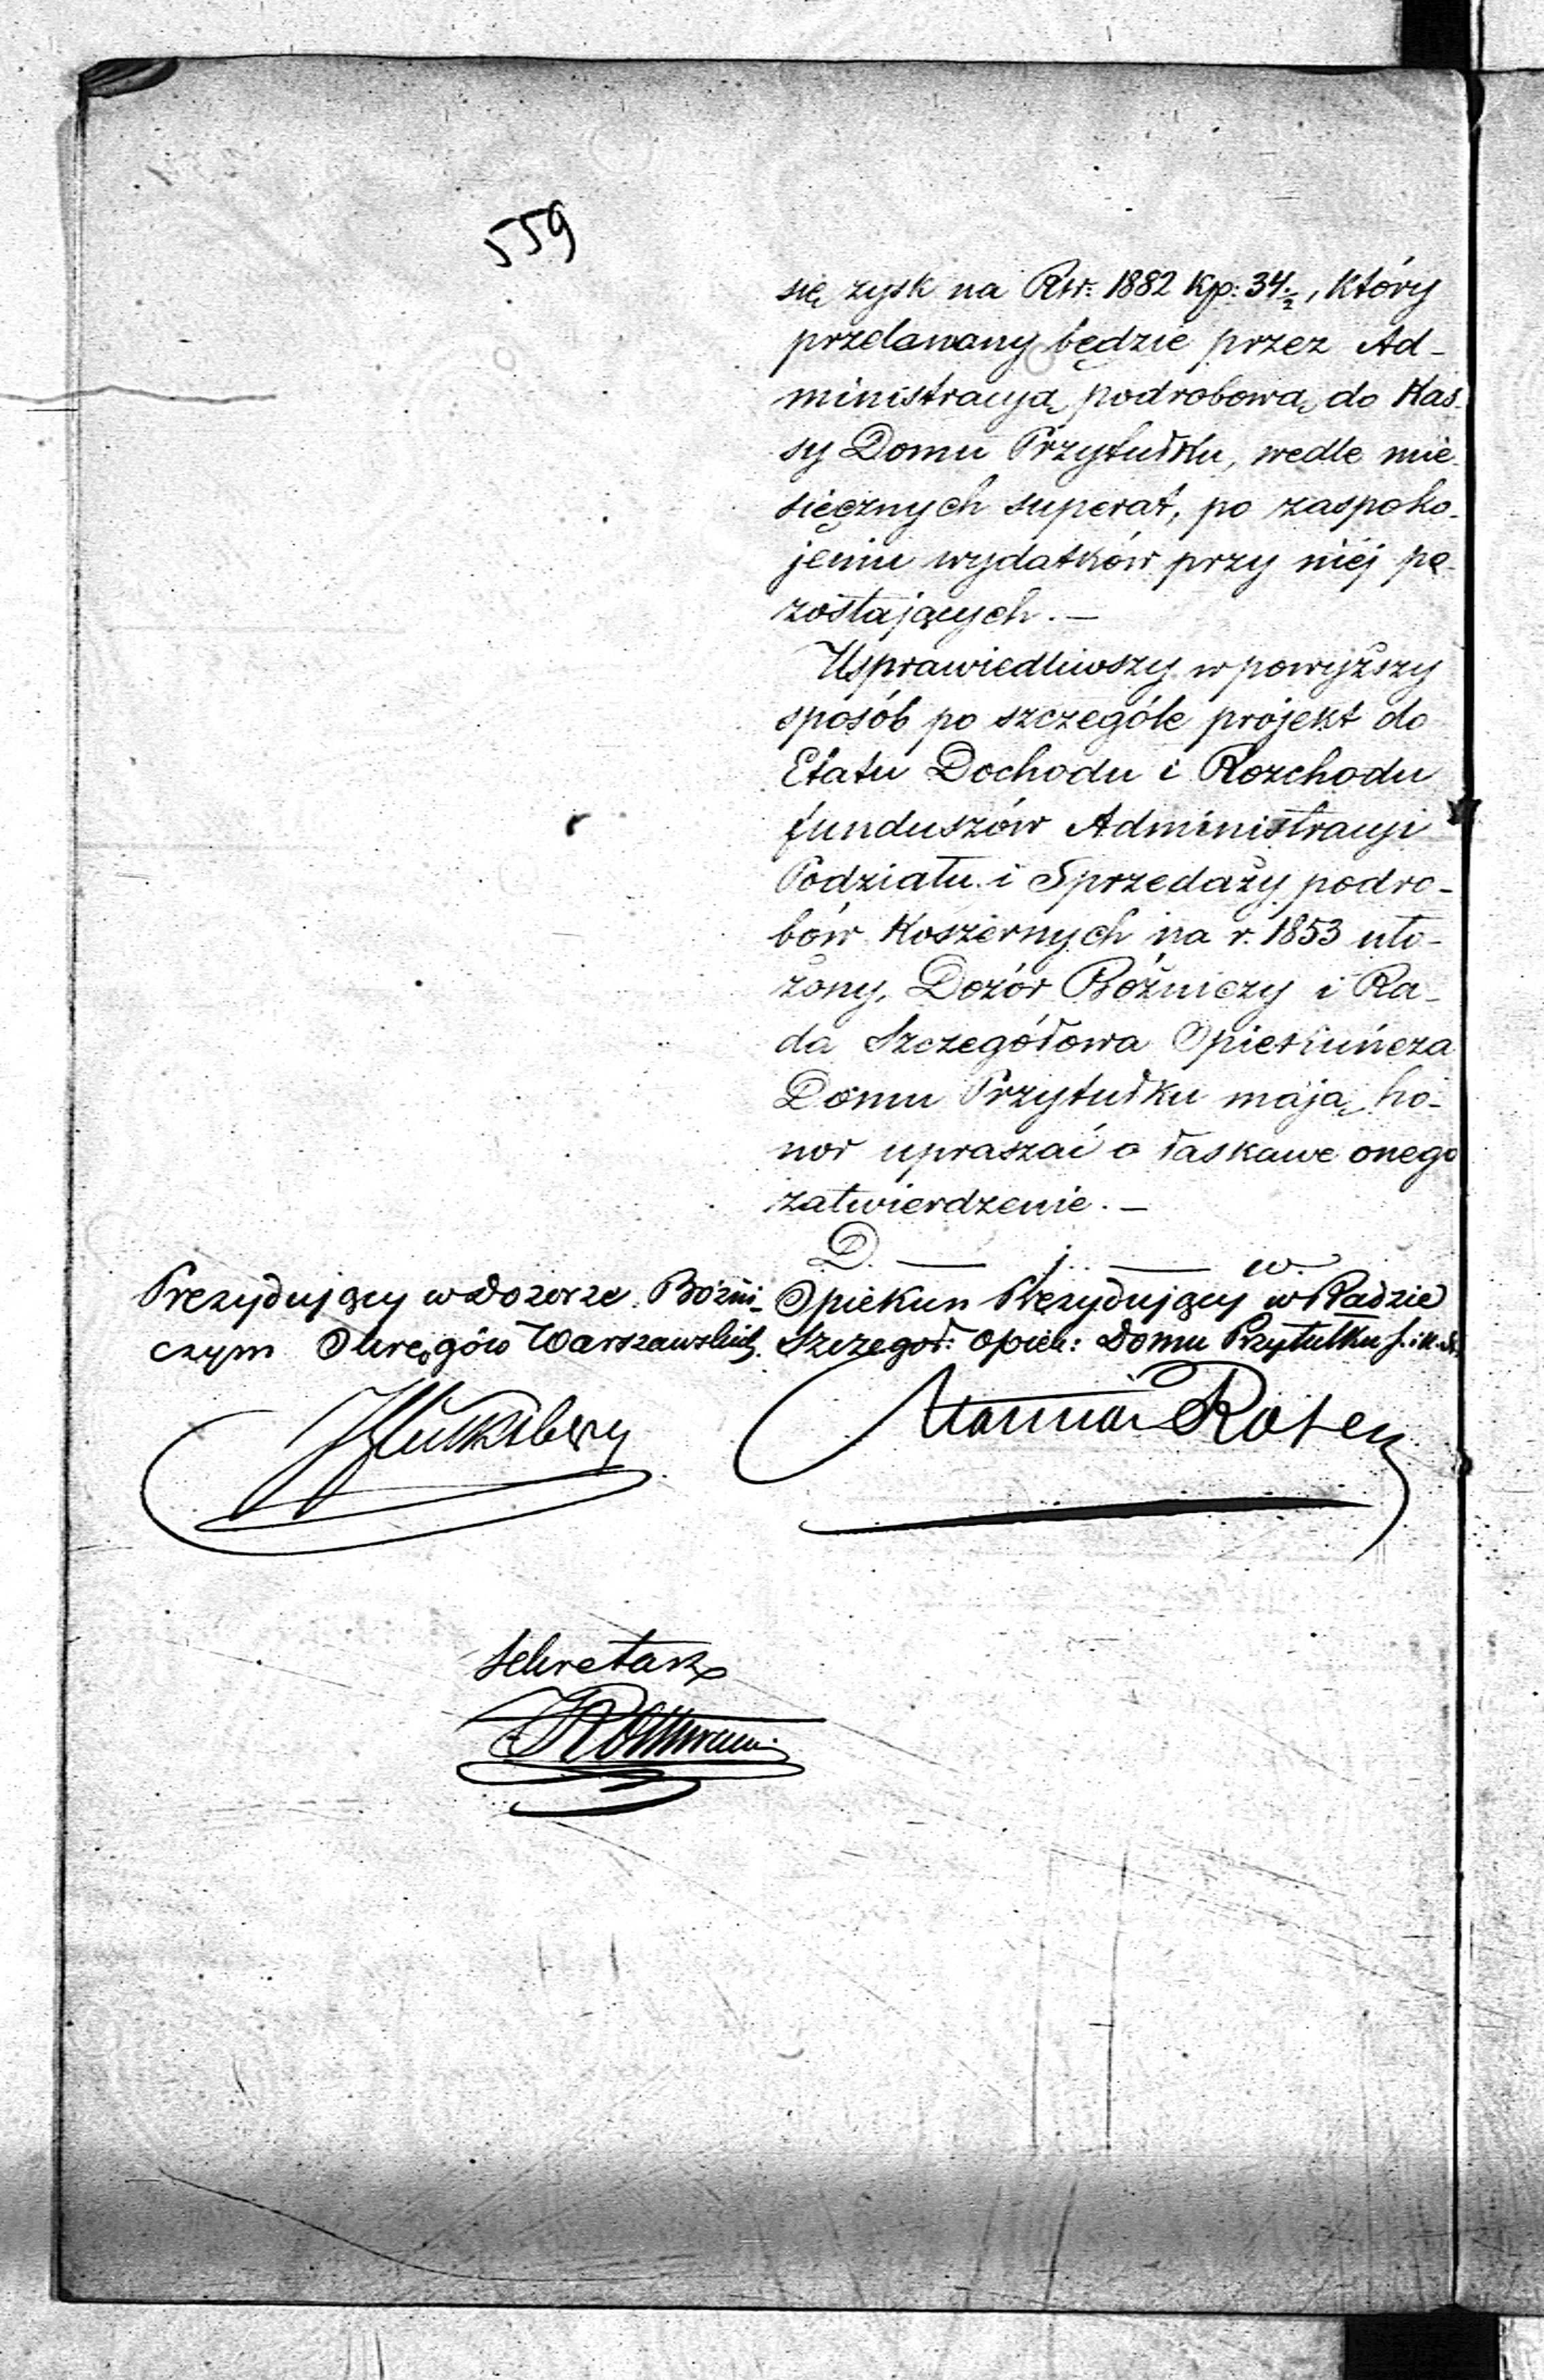 559
się zysk na Rsr: 1882 kp: 34 1/2, który
przelawany będzie przez Ad-
ministracyą podrobową do Kas-
sy Domu Przytułku, wedle mie-
sięcznych superat, po zaspoko-
jeniu wydatków przy niej po-
zostających. —
Usprawiedliwszy w powyższy
sposób po szczególe projekt do
Etatu Dochodu i Rozchodu
funduszów Administracyi
Podziału i Sprzedaży podro-
bów Koszernych na r. 1853 uło-
żony, Dozór Bóżniczy i Ra-
da Szczegółowa Opiekuńcza
Domu Przytułku mają ho-
nor upraszać o łaskawe onego
zatwierdzenie. —
D. — j. — w.
Prezydujący w Dozorze Bóżni-
czym Okręgów Warszawskich.
Opiekun Prezydujący w Radzie
Szczegoł: Opiek: Domu Przytułku
Mathias Rosen
Sekretarz